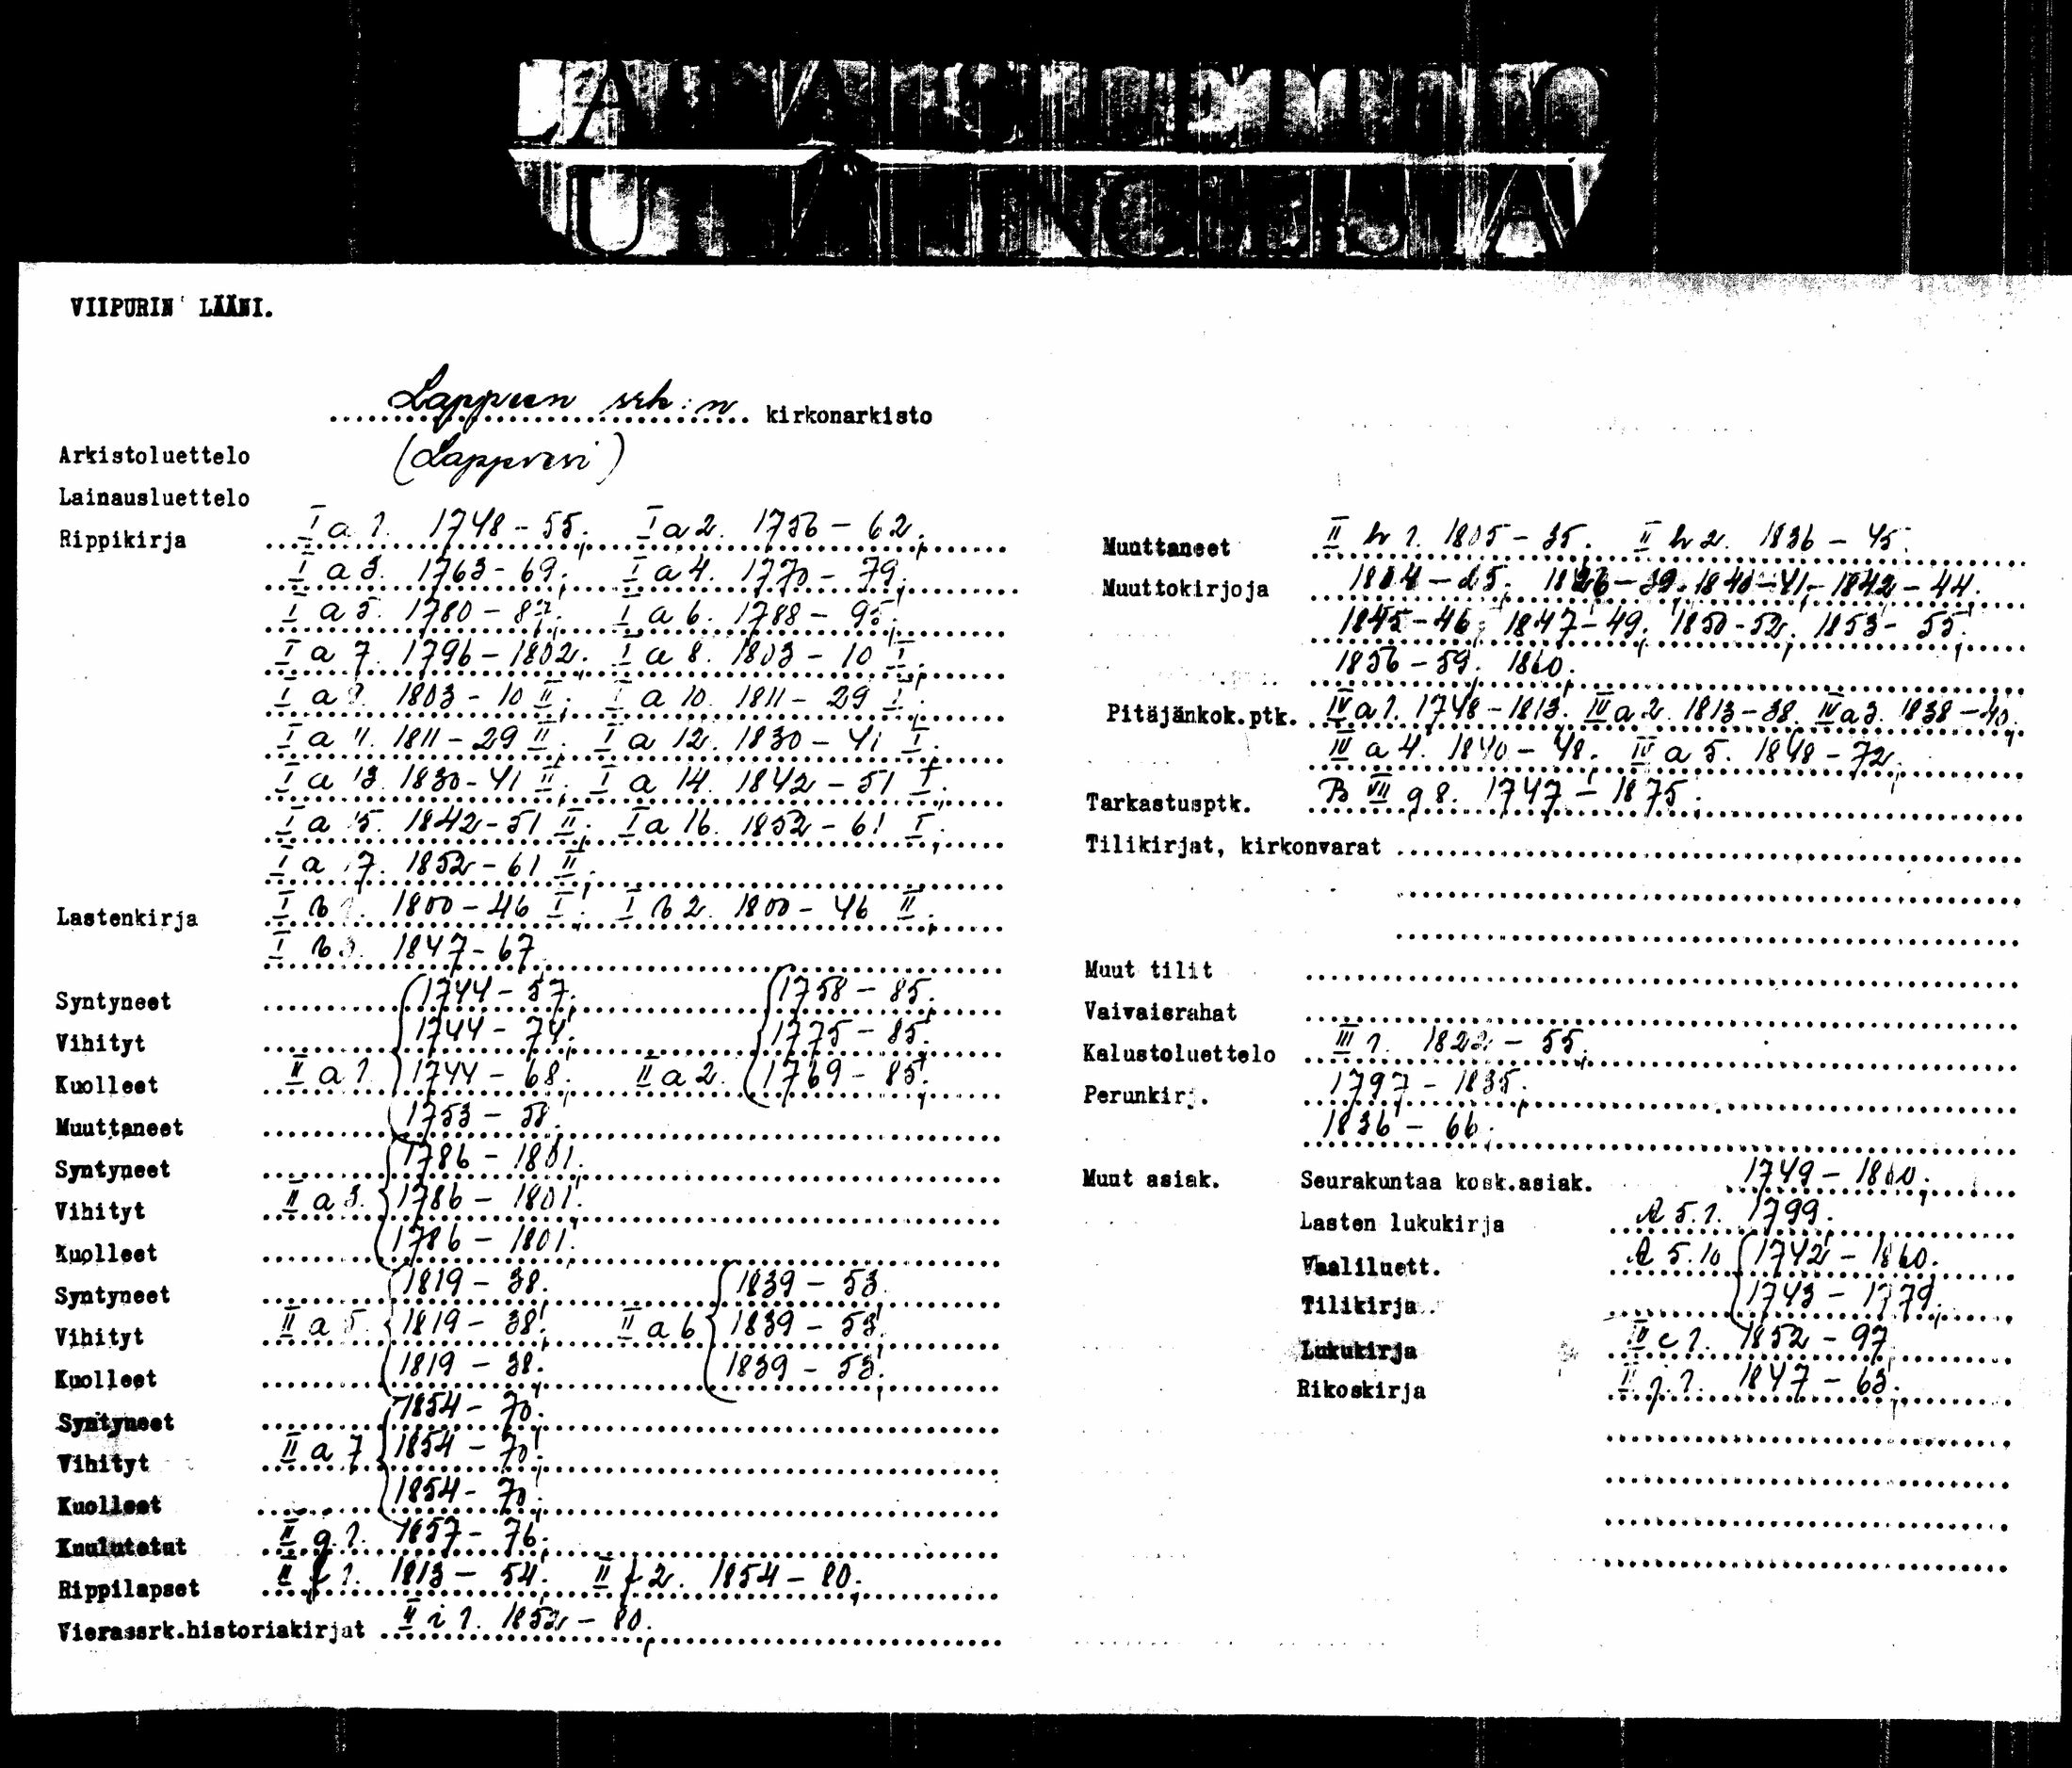 VIIPURIN LÄÄNI.
Lappeen srk:n kirkonarkisto
Arkistoluettelo (Lappvesi)
Lainausluettelo
Rippikirja I a 1. 1748-55; I a 2. 1756-62;
I a 3. 1763-69; I a 4. 1770-79;
I a 5. 1780-87; I a 6. 1788-95;
I a 7. 1796-1802. I a 8. 1803-10 I.
I a 9. 1803-10 II; I a 10. 1811-29 I;
I a 11. 1811-29 II; I a 12. 1830-41 I.
I a 13. 1830-41 II; I a 14. 1842-51 I;
I a 15. 1842-51 II; I a 16. 1852-61 I;
I a 17. 1852-61 II;
Lastenkirja I b 1. 1800-46 I; I b 2. 1800-46 II;
I b 3. 1847-67
Syntyneet 1744-57; 1758-85;
Vihityt 1744-74; 1775-85;
Kuolleet II a 1. 1744-68; II a 2. 1769-85;
Muuttaneet 1753-58.
Syntyneet 1786-1801.
Vihityt II a 3. 1786-1801;
Kuolleet 1786-1801;
Syntyneet 1819-38. 1839-53.
Vihityt II a 5. 1819-38; II a 6 1839-53;
Kuolleet 1819-38. 1839-53;
Syntyneet 1854-70.
Vihityt II a 7 1854-70;
Kuolleet 1854-70;
Kuulutetut II g 1. 1857-76;
Rippilapset II f 1. 1813-54; II f 2. 1854-80;
Vierassrk.historiakirjat II i 1. 1852-80;
Muuttaneet II h 1. 1805-35. II h 2. 1836-45.
Muuttokirjoja 1804-25; 1826-39. 1840-41, 1842-44.
1845-46; 1847-49; 1850-52; 1853-55;
1856-59; 1860.
Pitäjänkok.ptk. IV a 1. 1748-1813. IV a 2. 1813-38. IV a 3. 1838-40.
IV a 4. 1840-48; IV a 5. 1848-72;
Tarkastusptk. B VII g 8. 1747-1875;
Tilikirjat, kirkonvarat
Muut tilit
Vaivaisrahat
Kalustoluettelo III 1. 1822-55;
Perunkirj. 1797-1835;
1836-66;
Muut asiak. Seurakuntaa kosk.asiak. 1749-1800;
Lasten lukukirja A 5.1. 1799.
Vaaliluett. A 5.10 1742-1860.
Tilikirja 1743-1779;
Lukukirja II c 1. 1852-97
Rikoskirja II j 1. 1847-63;